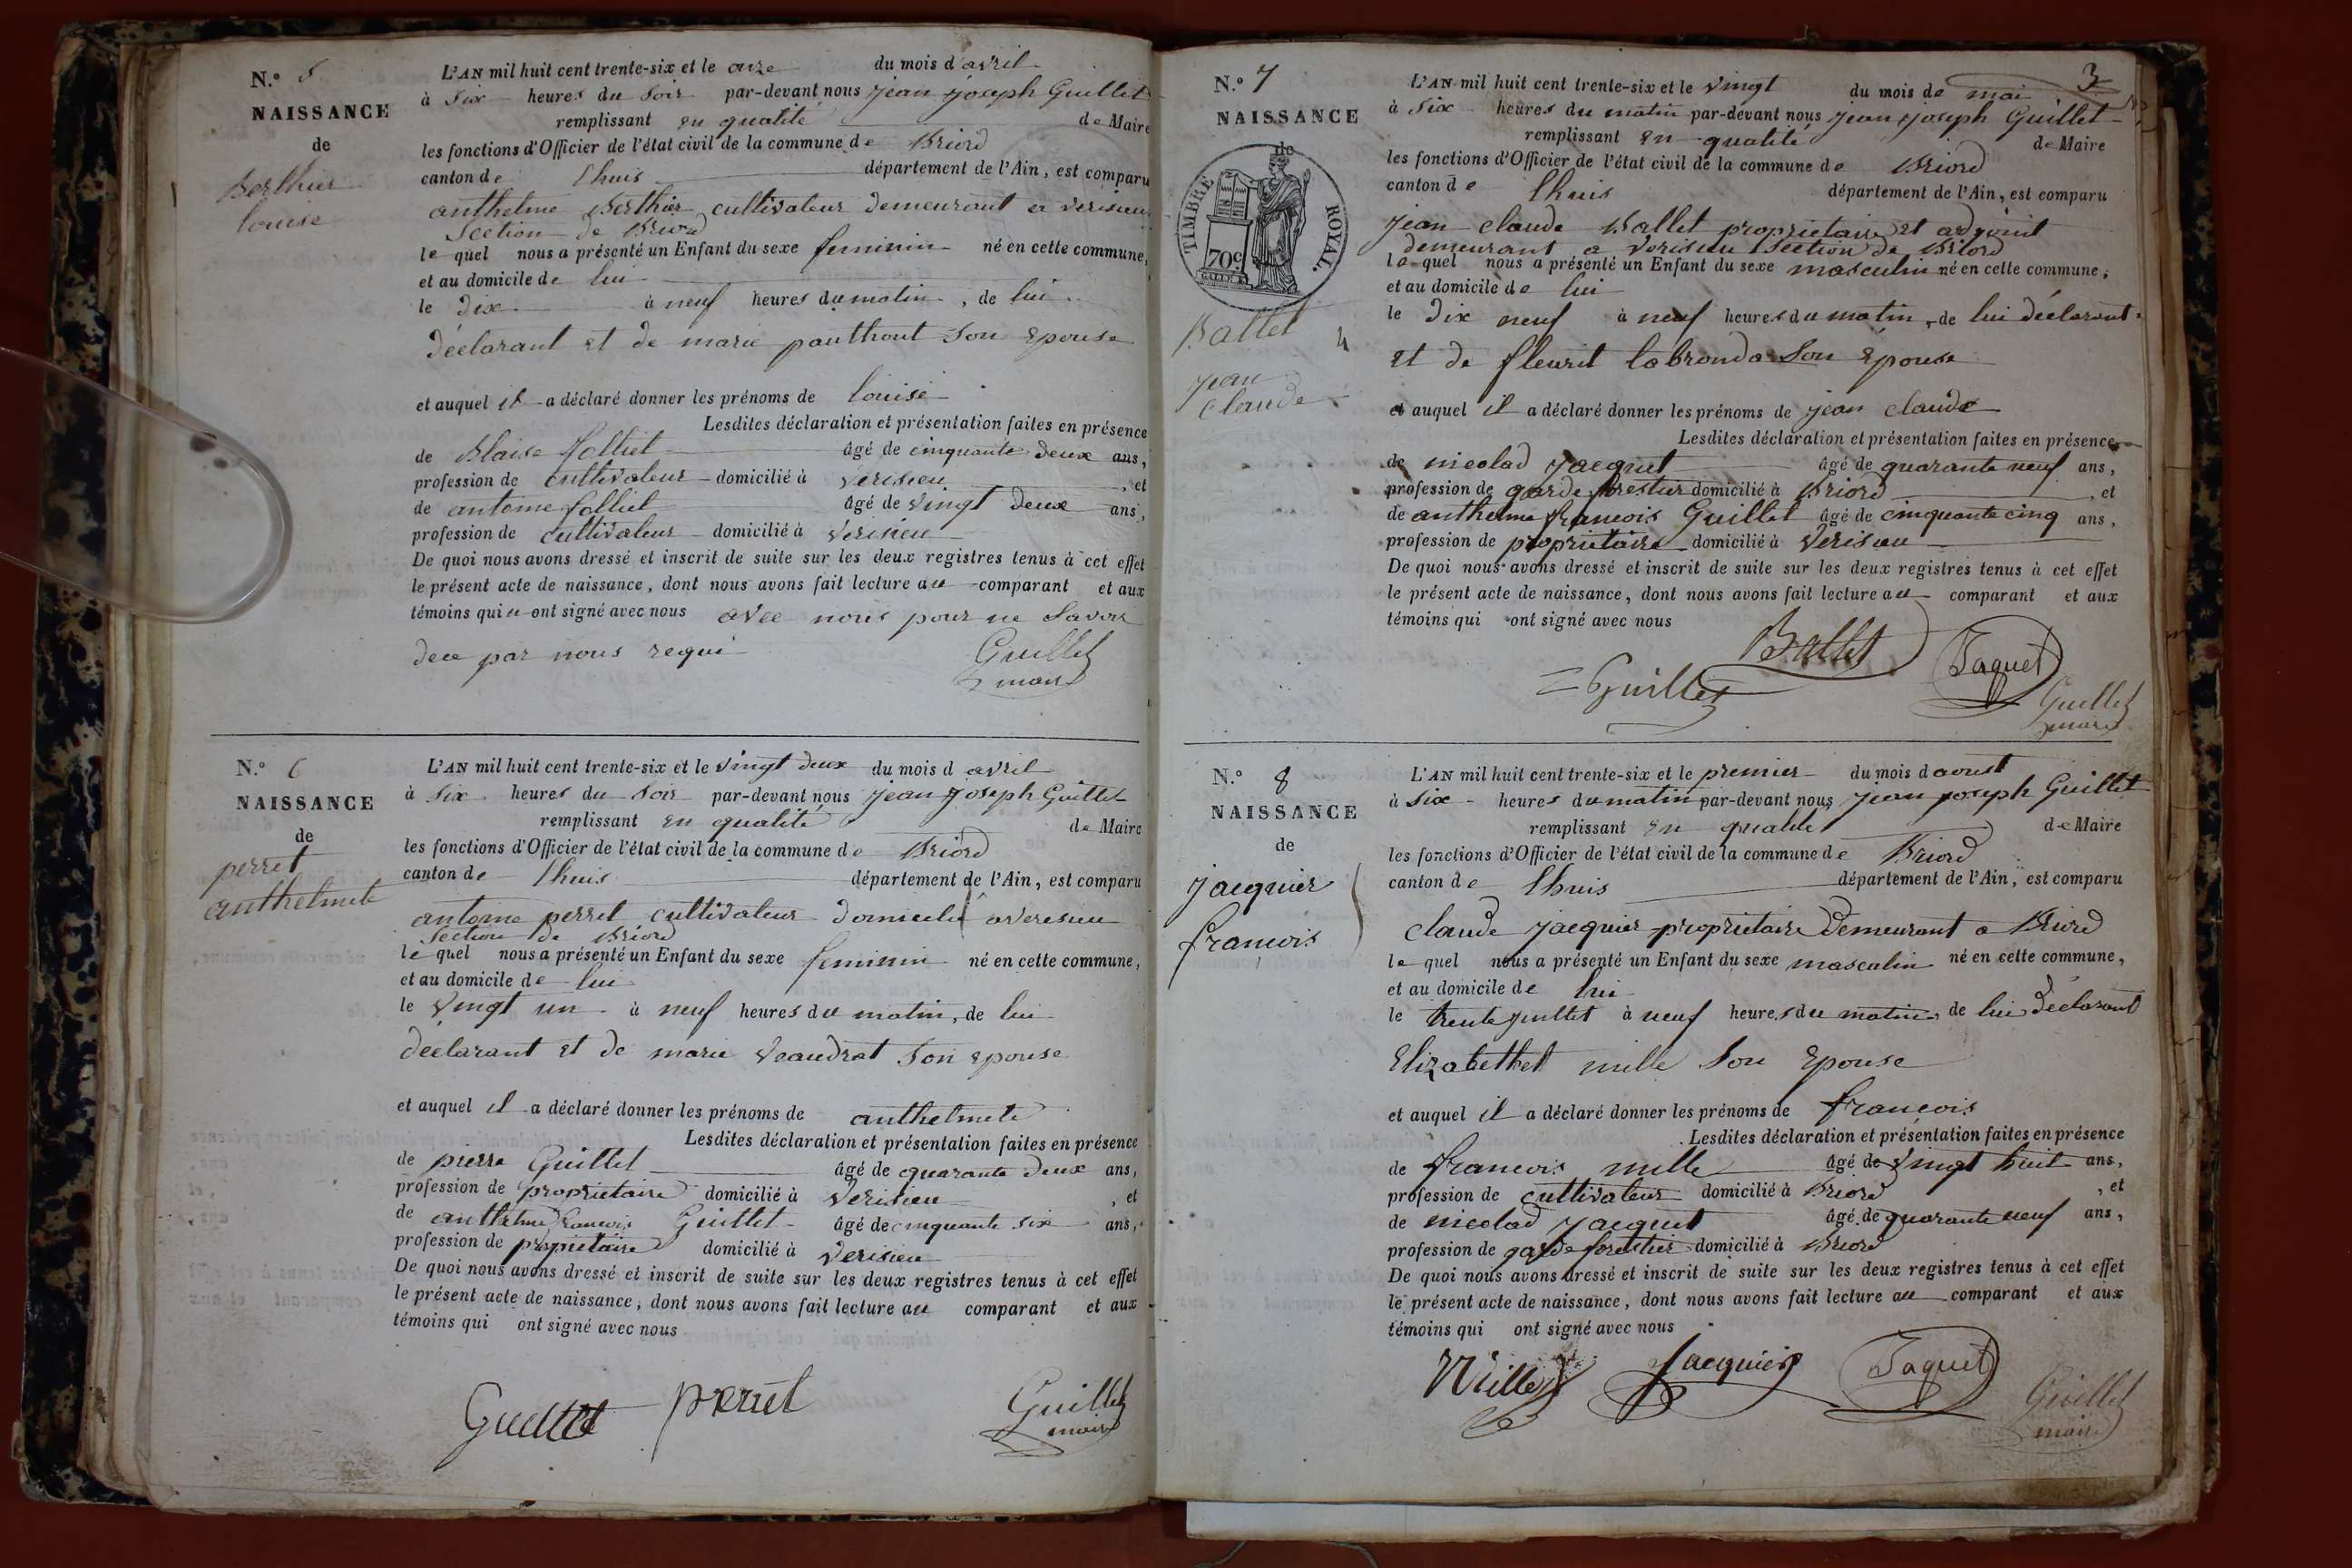 N.º 5
NAISSANCE
de
Berthier
louise
L'AN mil huit cent trente-six et le onze du mois d'avril
à Six heures du Soir par-devant nous jean joseph Guillet
remplissant en qualité de Maire
les fonctions d'Officier de l'état civil de la commune de Briord
canton de lhuis département de l'Ain, est comparu
anthelme Berthier cultivateur demeurant a verisieu
Section de Briord
lequel nous a présenté un Enfant du sexe feminin né en cette commune,
et au domicile de lui
le dix à neuf heures du matin, de lui
déclarant et de marie panthout son epouse
et auquel il a déclaré donner les prénoms de louise
Lesdites déclaration et présentation faites en présence
de Blaise folliet âgé de cinquante deux ans,
profession de cultivateur domicilié à verisieu, et
de antoine folliet âgé de vingt deux ans,
profession de cultivateur domicilié à verisieu
De quoi nous avons dressé et inscrit de suite sur les deux registres tenus à cet effet
le présent acte de naissance, dont nous avons fait lecture au comparant et aux
témoins qui n ont signé avec nous avec nous pour ne Savoir
dece par nous requi
Guillet
maire
N.º 6
NAISSANCE
de
perret
anthelmete
L'AN mil huit cent trente-six et le vingt deux du mois d avril
à Six heures du Soir par-devant nous jean joseph Guillet
remplissant en qualité de Maire
les fonctions d'Officier de l'état civil de la commune de Briord
canton de lhuis département de l'Ain, est comparu
antoine perret cultivateur domicilié a verisieu
Section de Briord
lequel nous a présenté un Enfant du sexe feminin né en cette commune,
et au domicile de lui
le vingt un à neuf heures du matin, de lui
déclarant et de marie veaudrat Son epouse
et auquel il a déclaré donner les prénoms de anthelmete
Lesdites déclaration et présentation faites en présence
de pierre Guillet âgé de quarante deux ans,
profession de proprietaire domicilié à verisieu, et
de anthelme francois Guillet âgé de cinquante six ans,
profession de proprietaire domicilié à verisieu
De quoi nous avons dressé et inscrit de suite sur les deux registres tenus à cet effet
le présent acte de naissance, dont nous avons fait lecture au comparant et aux
témoins qui ont signé avec nous
Guillet perret Guillet
maire
3
N.º 7
NAISSANCE
de
TIMBRE ROYAL.
70c
Ballet
jean
claude
L'AN mil huit cent trente-six et le vingt du mois de mai
à Six heures du matin par-devant nous jean joseph Guillet
remplissant en qualité de Maire
les fonctions d'Officier de l'état civil de la commune de Briord
canton de lhuis département de l'Ain, est comparu
jean claude Ballet proprietaire et adjoint
demeurant a verisieu Section de Briord
lequel nous a présenté un Enfant du sexe masculin né en cette commune,
et au domicile de lui
le dix neuf à neuf heures du matin, de lui déclarant
et de fleurit labronda Son épouse
et auquel il a déclaré donner les prénoms de jean claude
Lesdites déclaration et présentation faites en présence
de nicolad jacquet âgé de quarante neuf ans,
profession de garde forestier domicilié à Briord, et
de anthelme francois Guillet âgé de cinquante cinq ans,
profession de proprietaire domicilié à verisieu
De quoi nous avons dressé et inscrit de suite sur les deux registres tenus à cet effet
le présent acte de naissance, dont nous avons fait lecture au comparant et aux
témoins qui ont signé avec nous
Ballet Jaquet
Guillet Guillet
maire
N.º 8
NAISSANCE
de
jacquier
francois
L'AN mil huit cent trente-six et le premier du mois d aoust
à Six heures du matin par-devant nous jean joseph Guillet
remplissant en qualité de Maire
les fonctions d'Officier de l'état civil de la commune de Briord
canton de lhuis département de l'Ain, est comparu
claude jacquier proprietaire demeurant a Briord
lequel nous a présenté un Enfant du sexe masculin né en cette commune,
et au domicile de lui
le trente juillet à neuf heures du matin de lui déclarant
Elizabethet mille Son Epouse
et auquel il a déclaré donner les prénoms de francois
Lesdites déclaration et présentation faites en présence
de francois mille âgé de vingt huit ans,
profession de cultivateur domicilié à Briord, et
de nicolad jacquet âgé de quarante neuf ans,
profession de garde forestier domicilié à Briord
De quoi nous avons dressé et inscrit de suite sur les deux registres tenus à cet effet
le présent acte de naissance, dont nous avons fait lecture au comparant et aux
témoins qui ont signé avec nous
Mille Jacquier Jaquet Guillet
maire